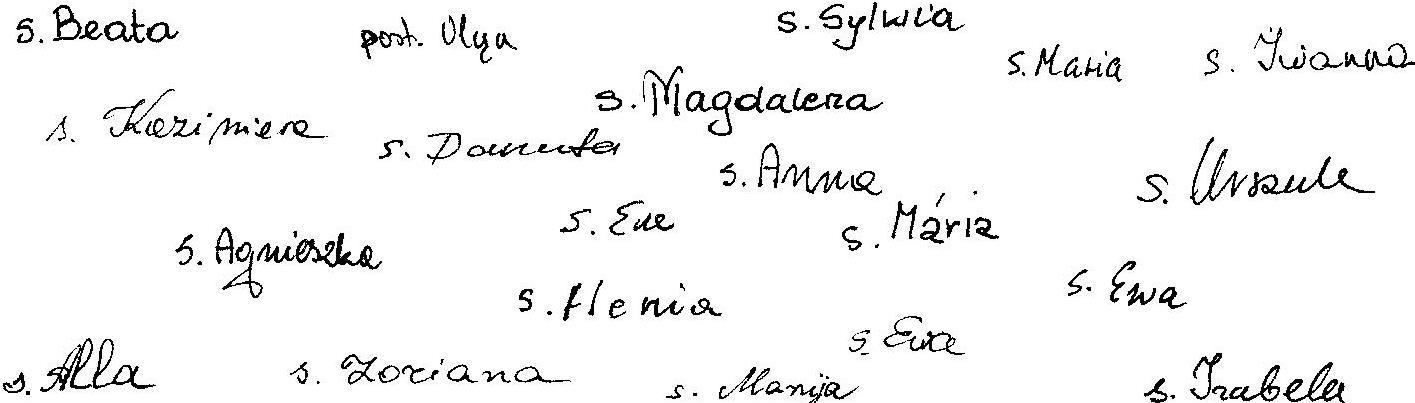 s. Beata
post. Olga
s. Sylwia
s. Maria
s. Iwanna
s. Kazimiera
s. Magdalena
s. Danuta
s. Anna
s. Urszula
s. Ewa
s. Mária
s. Agnieszka
s. Henia
s. Ewa
s. Ewa
s. Alla
s. Zoriana
s. Marija
s. Izabela